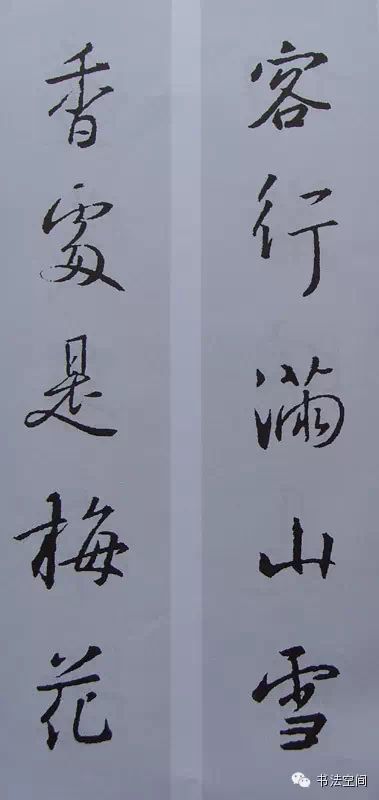 客行滿山雪
香處是梅花
书法空间